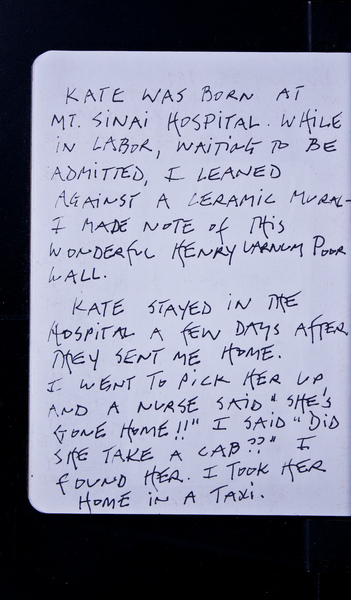 KATE WAS BORN AT
MT. SINAI HOSPITAL. WHILE
IN LABOR, WAITING TO BE
ADMITTED, I LEANED
AGAINST A CERAMIC MURAL-
I MADE NOTE OF THIS
WONDERFUL HENRY VARNUM POOR
WALL.
KATE STAYED IN THE
HOSPITAL A FEW DAYS AFTER
THEY SENT ME HOME.
I WENT TO PICK HER UP,
AND A NURSE SAID "SHE'S
GONE HOME!!" I SAID "DID
SHE TAKE A CAB??" I
FOUND HER. I TOOK HER
HOME IN A TAXI.